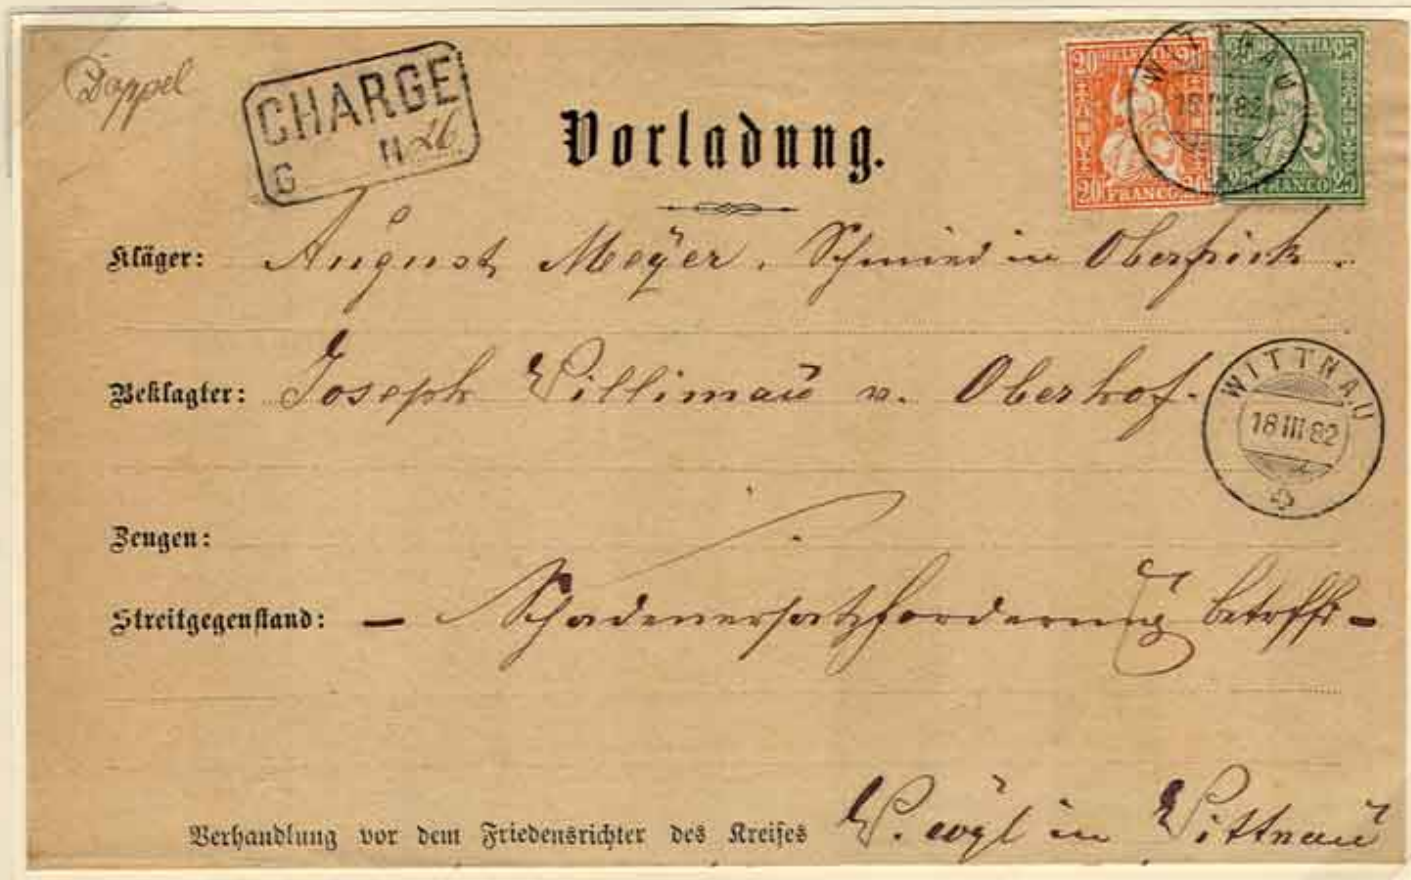 Doppel
CHARGE
G N
Vorladung.
20 HELVETIA 20
20 FRANCO 20
25 HELVETIA 25
25 FRANCO 25
WITTNAU
18 III 82
Kläger: August Meÿer, Schmied in Oberfrick.
Beklagter: Joseph Willimañ v. Oberhof.
WITTNAU
18 III 82
Zeugen:
Streitgegenstand: – Schadenersatzforderung betrffd –
Verhandlung vor dem Friedensrichter des Kreises in Wittnau